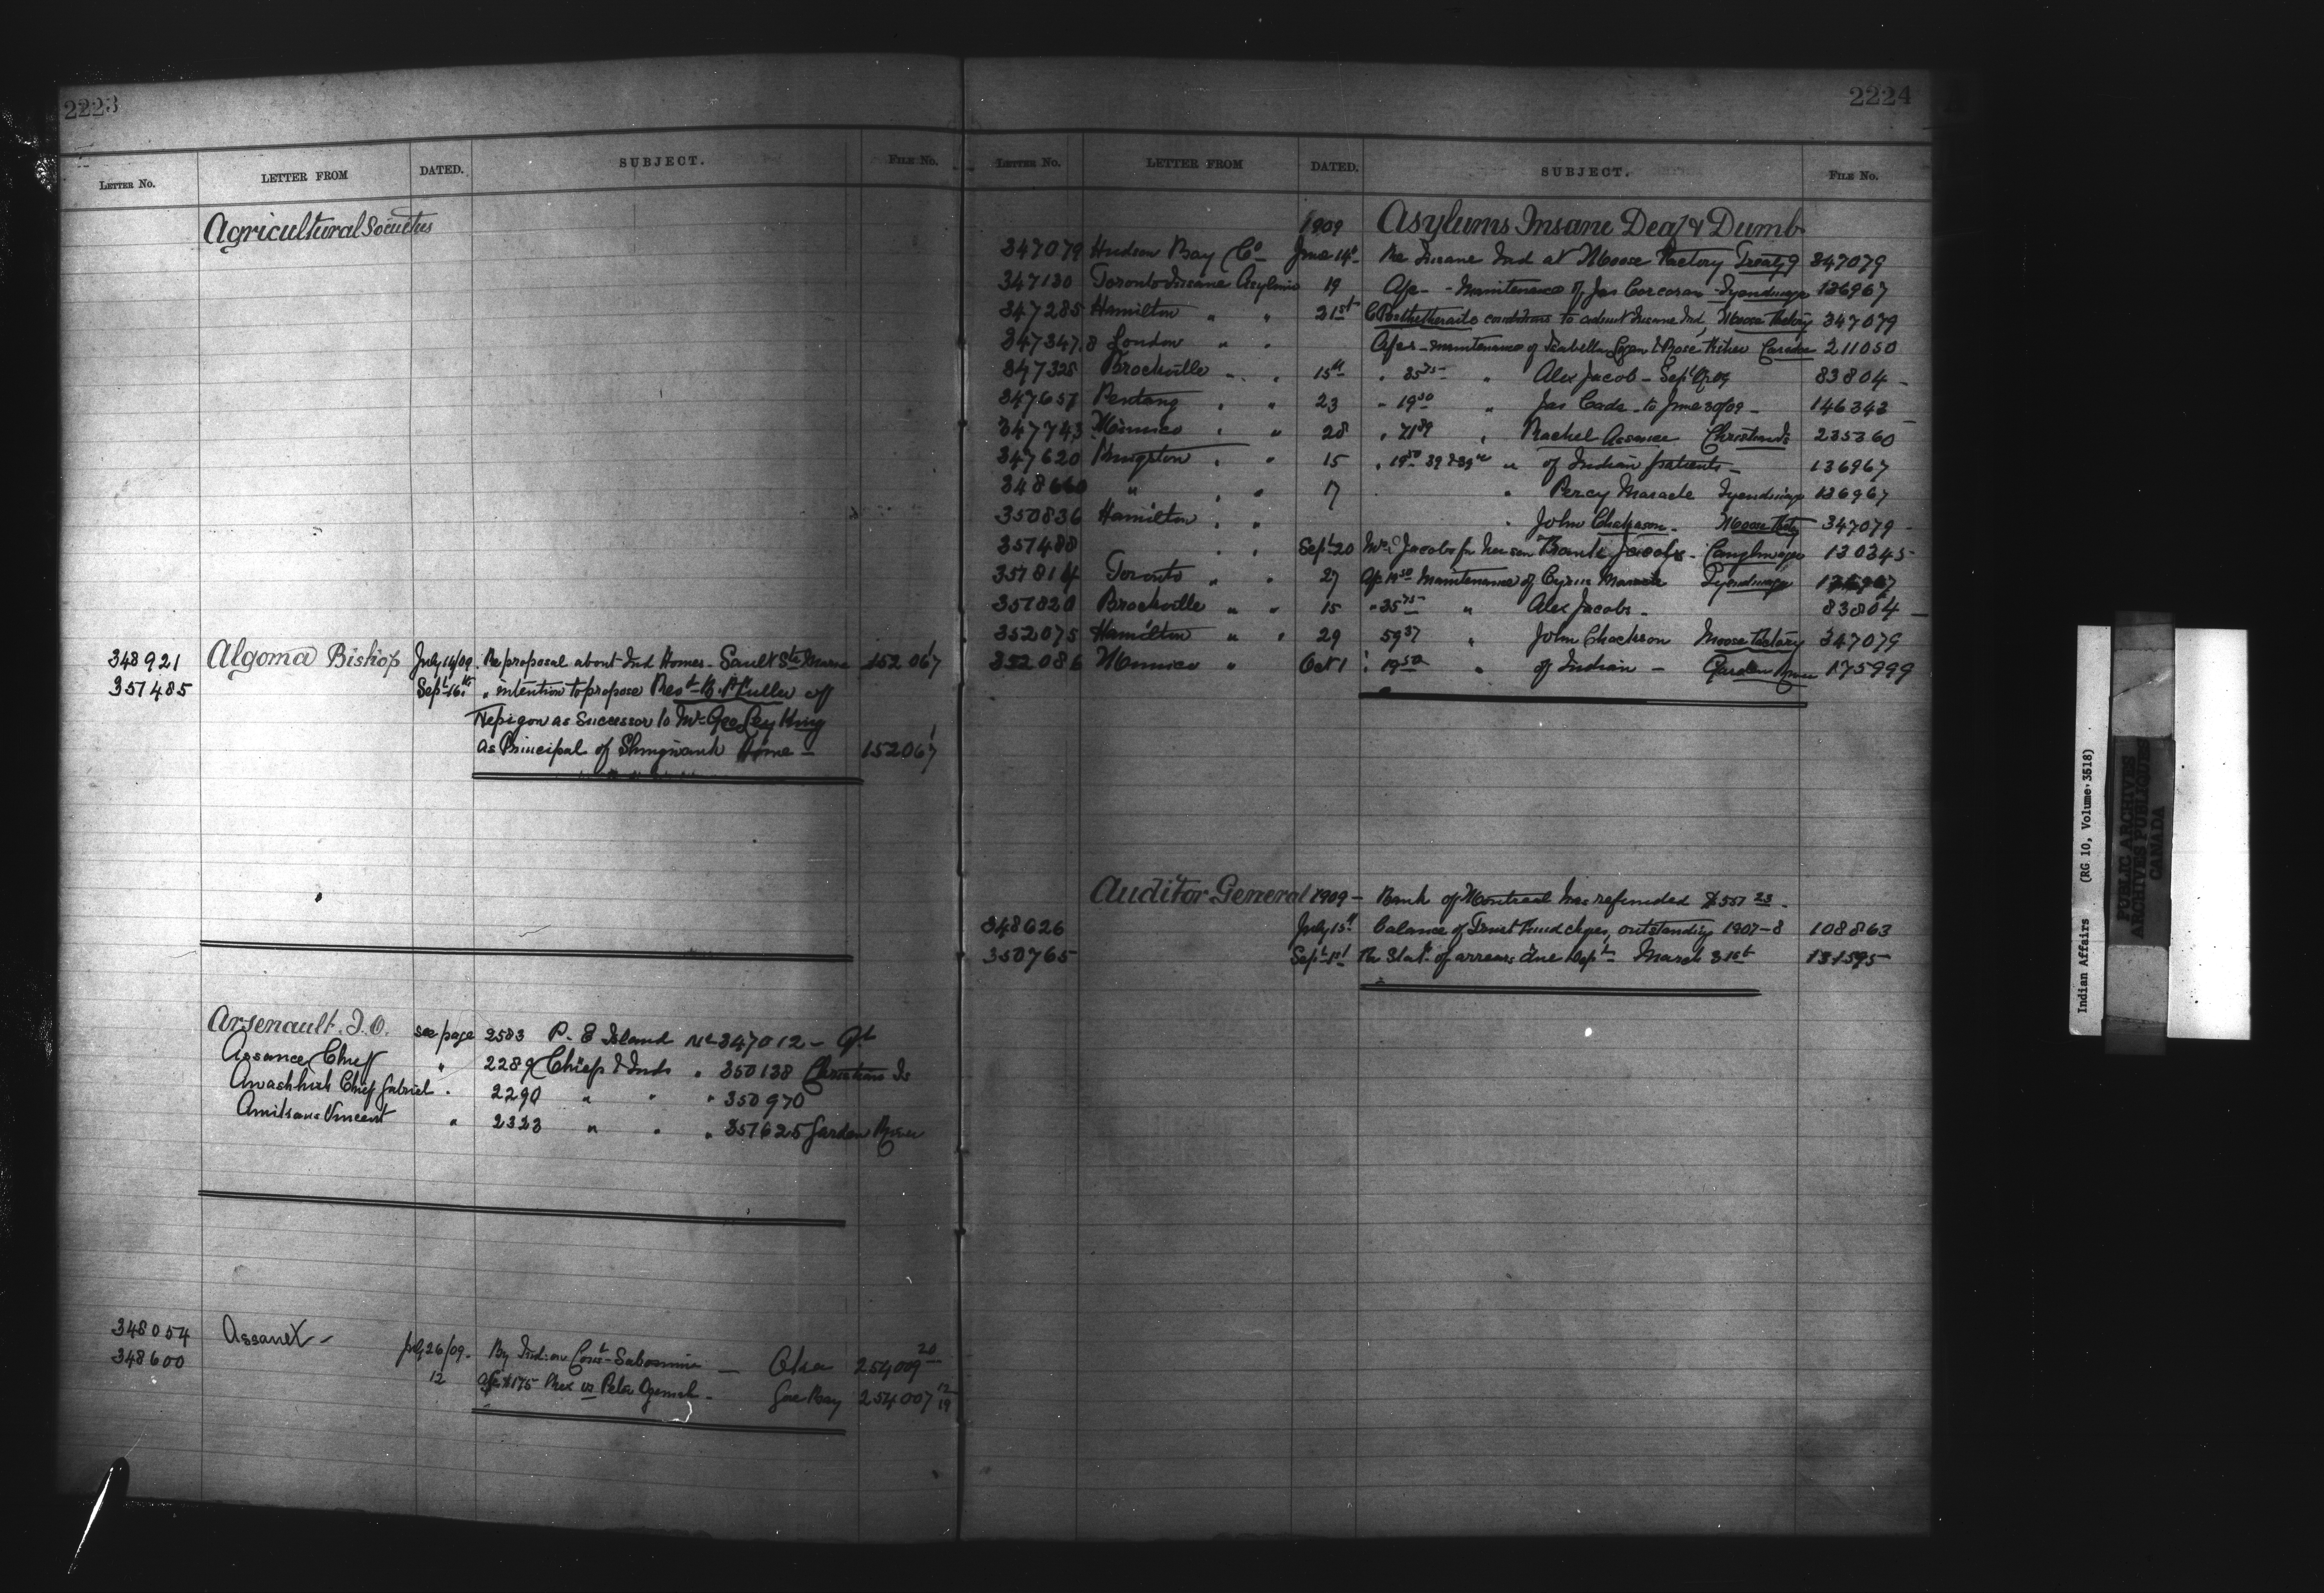 2223
LETTER NO. LETTER FROM DATED. SUBJECT. FILE NO.
Agricultural Societies
348921 Algoma Bishop July 14/09 Re proposal about Ind Homes - Sault Ste Marie 152067
351485 Sept 16th " intention to propose Rest B. P. Fuller off
Nepigon as Successor to Mr Geo Ley King
as Principal of Shingwauk Home - 152067
Arsenault. J. O. see page 2583 P. E Island No 347012 -
Assance Chief " 2289 Chiefs & Inds " 350138 Christian Is
Chief Gabriel " 2290 " " " 350970
Vincent " 2323 " " " 351625 Garden River
348054 July 26/09. By Indian Const - Oka 254009 20
348600 12 $175 Rex vs Peter Gore Bay 254007 12/19
2224
LETTER NO. LETTER FROM DATED. SUBJECT. FILE NO.
1909 Asylums Insane Deaf & Dumb
347079 Hudson Bay Co June 14th Re Insane Ind at Moose Factory Treaty 9 347079
347130 Toronto Insane Asylum 19 - Maintenance of Jas Corcoran - Tyendinaga 136967
347285 Hamilton " " 21st conditions to admit Insane Ind, Moose Factory 347079
347347.8 London " " - maintenance of Isabella Logan & Rose Fisher Caradoc 211050
347328 Brockville " " 15th " 35 75 " Alex Jacob - 83804 -
347651 Pentang " " 23 " 19 50 " Jas Cada - to June 30/09 - 146342
347743 Mimico " " 28 " 71 89 " Rachel Assance Christian Is 235360
347620 Kingston " " 15 " 19 50 " of Indian patients - 136967
" " " 17 " Percy Maracle Tyendinaga 136967
350836 Hamilton " " " John Moose Factory 347079 -
351488 " " Sept 20 Jacobs for her son Frank Jacobs - Caughnawaga 130345
351814 Toronto " " 27 19 50 Maintenance of Cyrus Maracle Tyendinaga
351820 Brockville " " 15 " 35 75 " Alex Jacobs - 83804 -
352075 Hamilton " " 29 59 37 " John Moose Factory 347079
352086 Mimico " Oct 1 19 50 " of Indian - Garden River 175999
Auditor General 1909 - Bank of Montreal has refunded $551 23 -
348626 July 15th balance of Trust Fund chqes, outstanding 1907-8 108863
350765 Sept 1st Re Stat. of arrears due Dept March 31st 131595
Indian Affairs (RG 10, Volume 3518)
PUBLIC ARCHIVES
ARCHIVES PUBLIQUES
CANADA